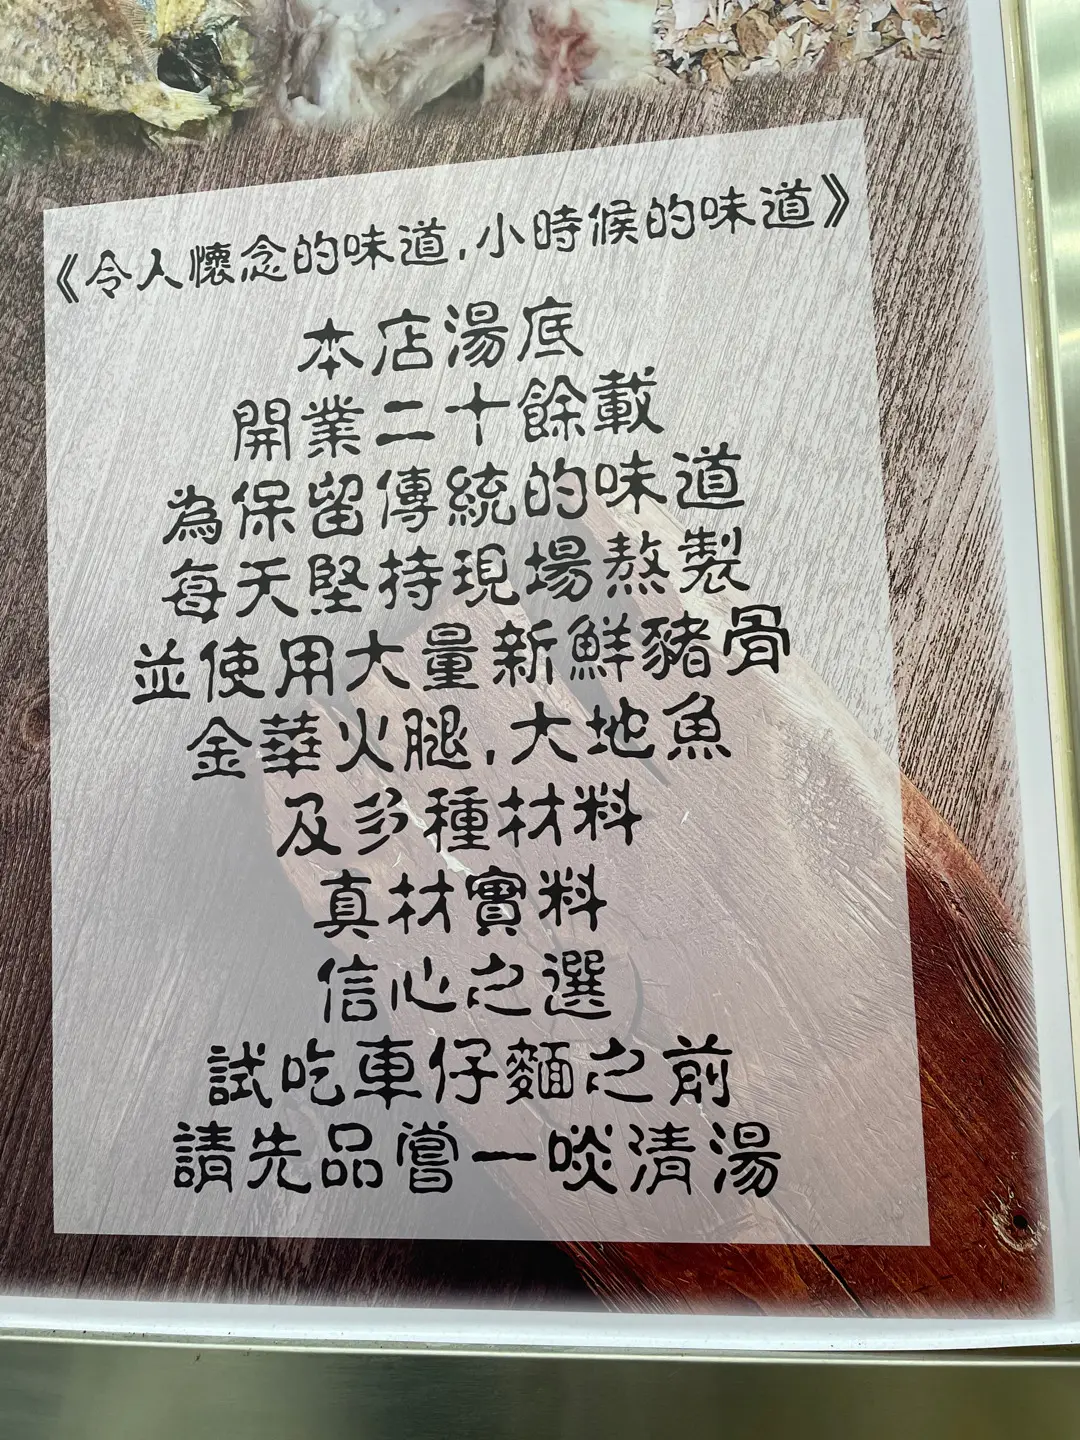 《令人懷念的味道,小時候的味道》
本店湯底
開業二十餘載
為保留傳統的味道
每天堅持現場熬製
並使用大量新鮮豬骨
金華火腿,大地魚
及多種材料
真材實料
信心之選
試吃車仔麵之前
請先品嘗一啖清湯